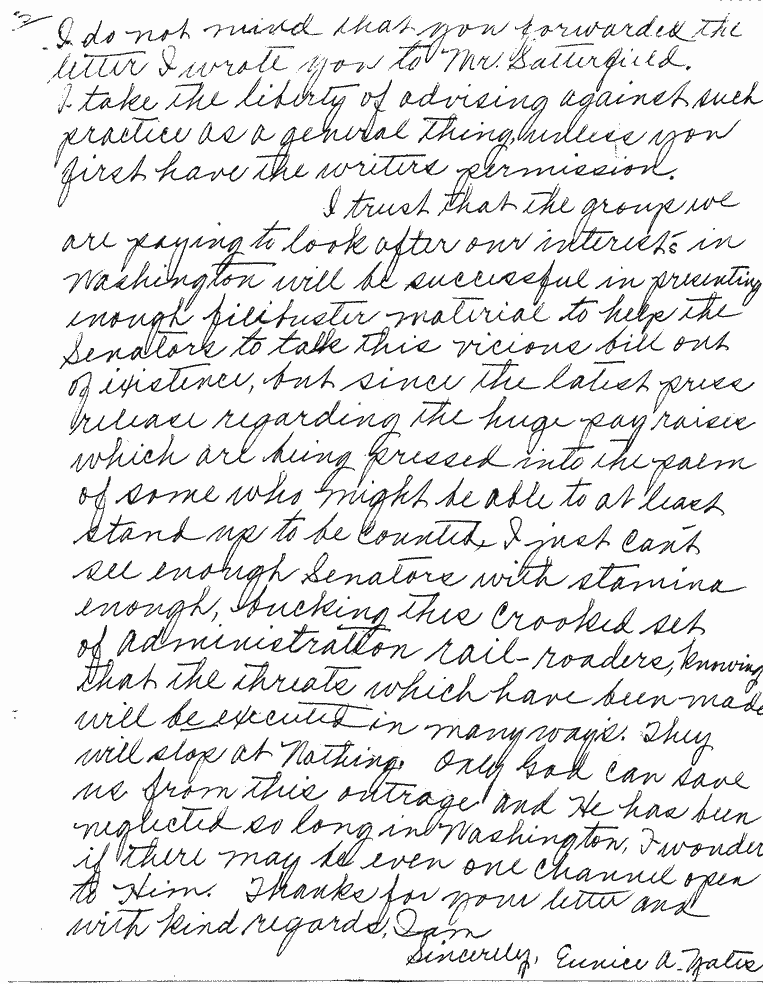 2
I do not mind that you forwarded the
letter I wrote you to Mr. Satterfield.
I take the liberty of advising against such
practice as a general thing, unless you
first have the writers permission.
I trust that the group we
are paying to look after our interests in
Washington will be successful in presenting
enough filibuster material to help the
Senators to talk this vicious bill out
of existence, but since the latest press
release regarding the huge pay raises
which are being pressed into the palm
of some who might be able to at least
stand up to be counted, I just can't
see enough Senators with stamina
enough, bucking this crooked set
of administration rail-roaders, knowing
that the threats which have been made
will be executed in many ways. They
will stop at Nothing. Only God can save
us from this outrage and He has been
neglected so long in Washington, I wonder
if there may be even one channel open
to Him. Thanks for your letter and
with kind regards, I am
Sincerely, Eunice A. Yates